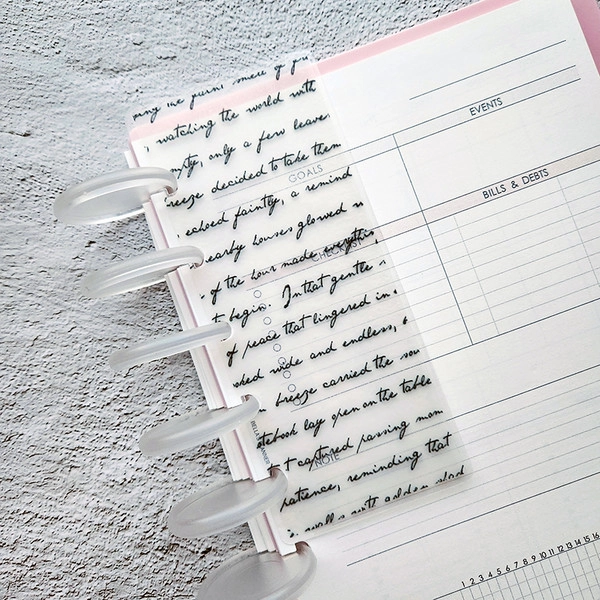 ing the purni smell of
, watching the world with
only a few leave
breeze decided to take them
echoed faintly, a remind
nearby houses glowed
of the hour made everythin
t begin. In that gentle
of peace that lingered in
oked wide and endless,
breeze carried the sou
otebook lay open on the table
t captured passing mom
patience, reminding that
walls with golden
EVENTS
GOALS
BILLS & DEBTS
CHECKLIST
NOTE
1 2 3 4 5 6 7 8 9 10 11 12 13 14 15 16